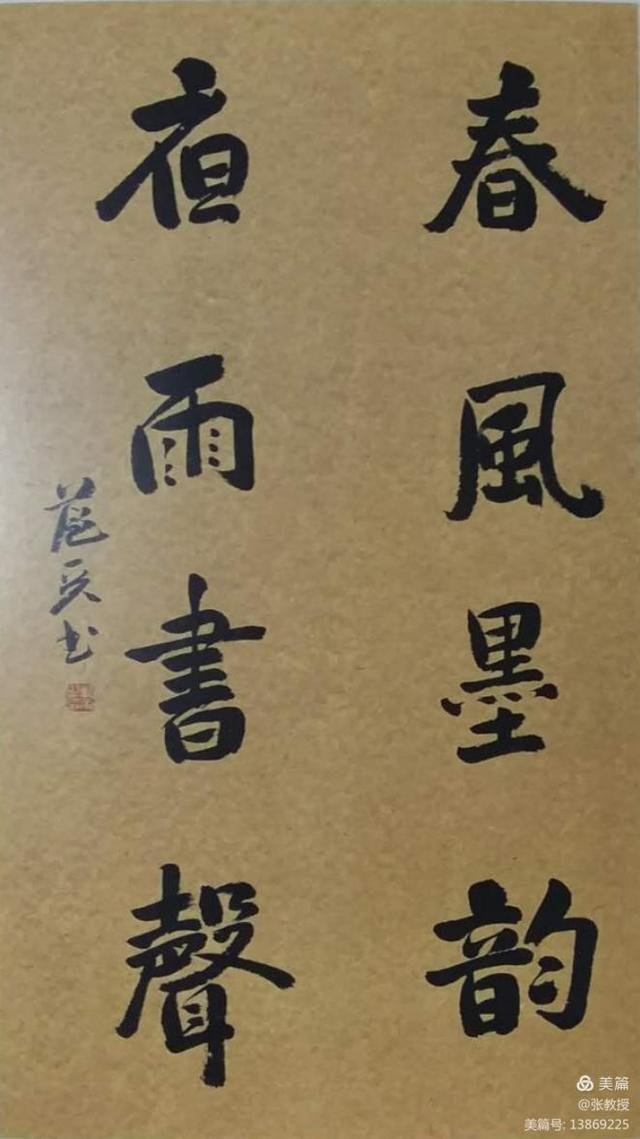 春風墨韵
夜雨書聲
范兵书
美篇
@张教授
美篇号: 13869225